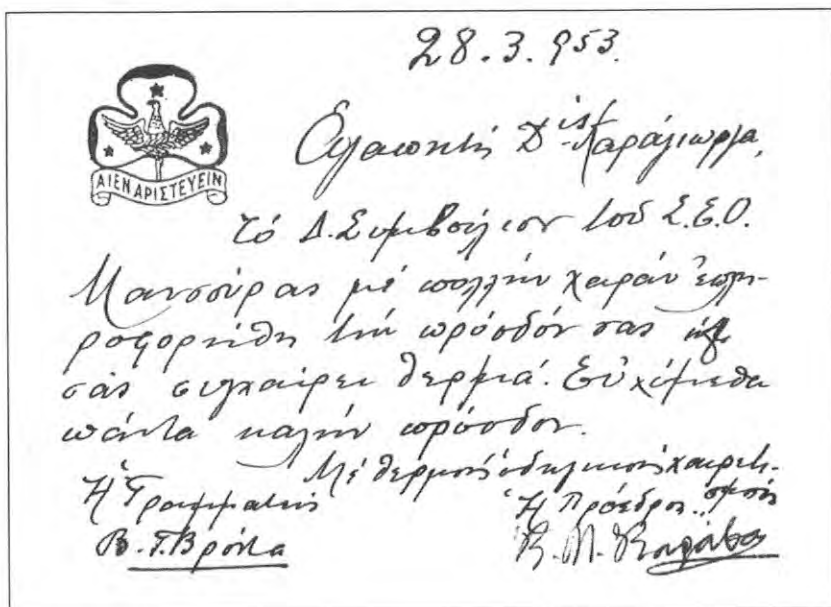 28.3.953.
ΑΙΕΝ ΑΡΙΣΤΕΥΕΙΝ
Ἀγαπητή Δ/ις Καράγιωργα,
Τό Δ. Συμβούλιον τοῦ Σ.Ε.Ο.
Μανσούρας μέ πολλήν χαράν ἐπλη-
ροφορήθη τήν πρόοδόν σας καί
σᾶς συγχαίρει θερμά. Εὐχόμεθα
πάντα καλήν πρόοδον.
Μέ θερμούς ὁδηγικούς χαιρετι-
σμούς
Ἡ Γραμματεύς Ἡ Πρόεδρος
Β. Γ. Βρόντα